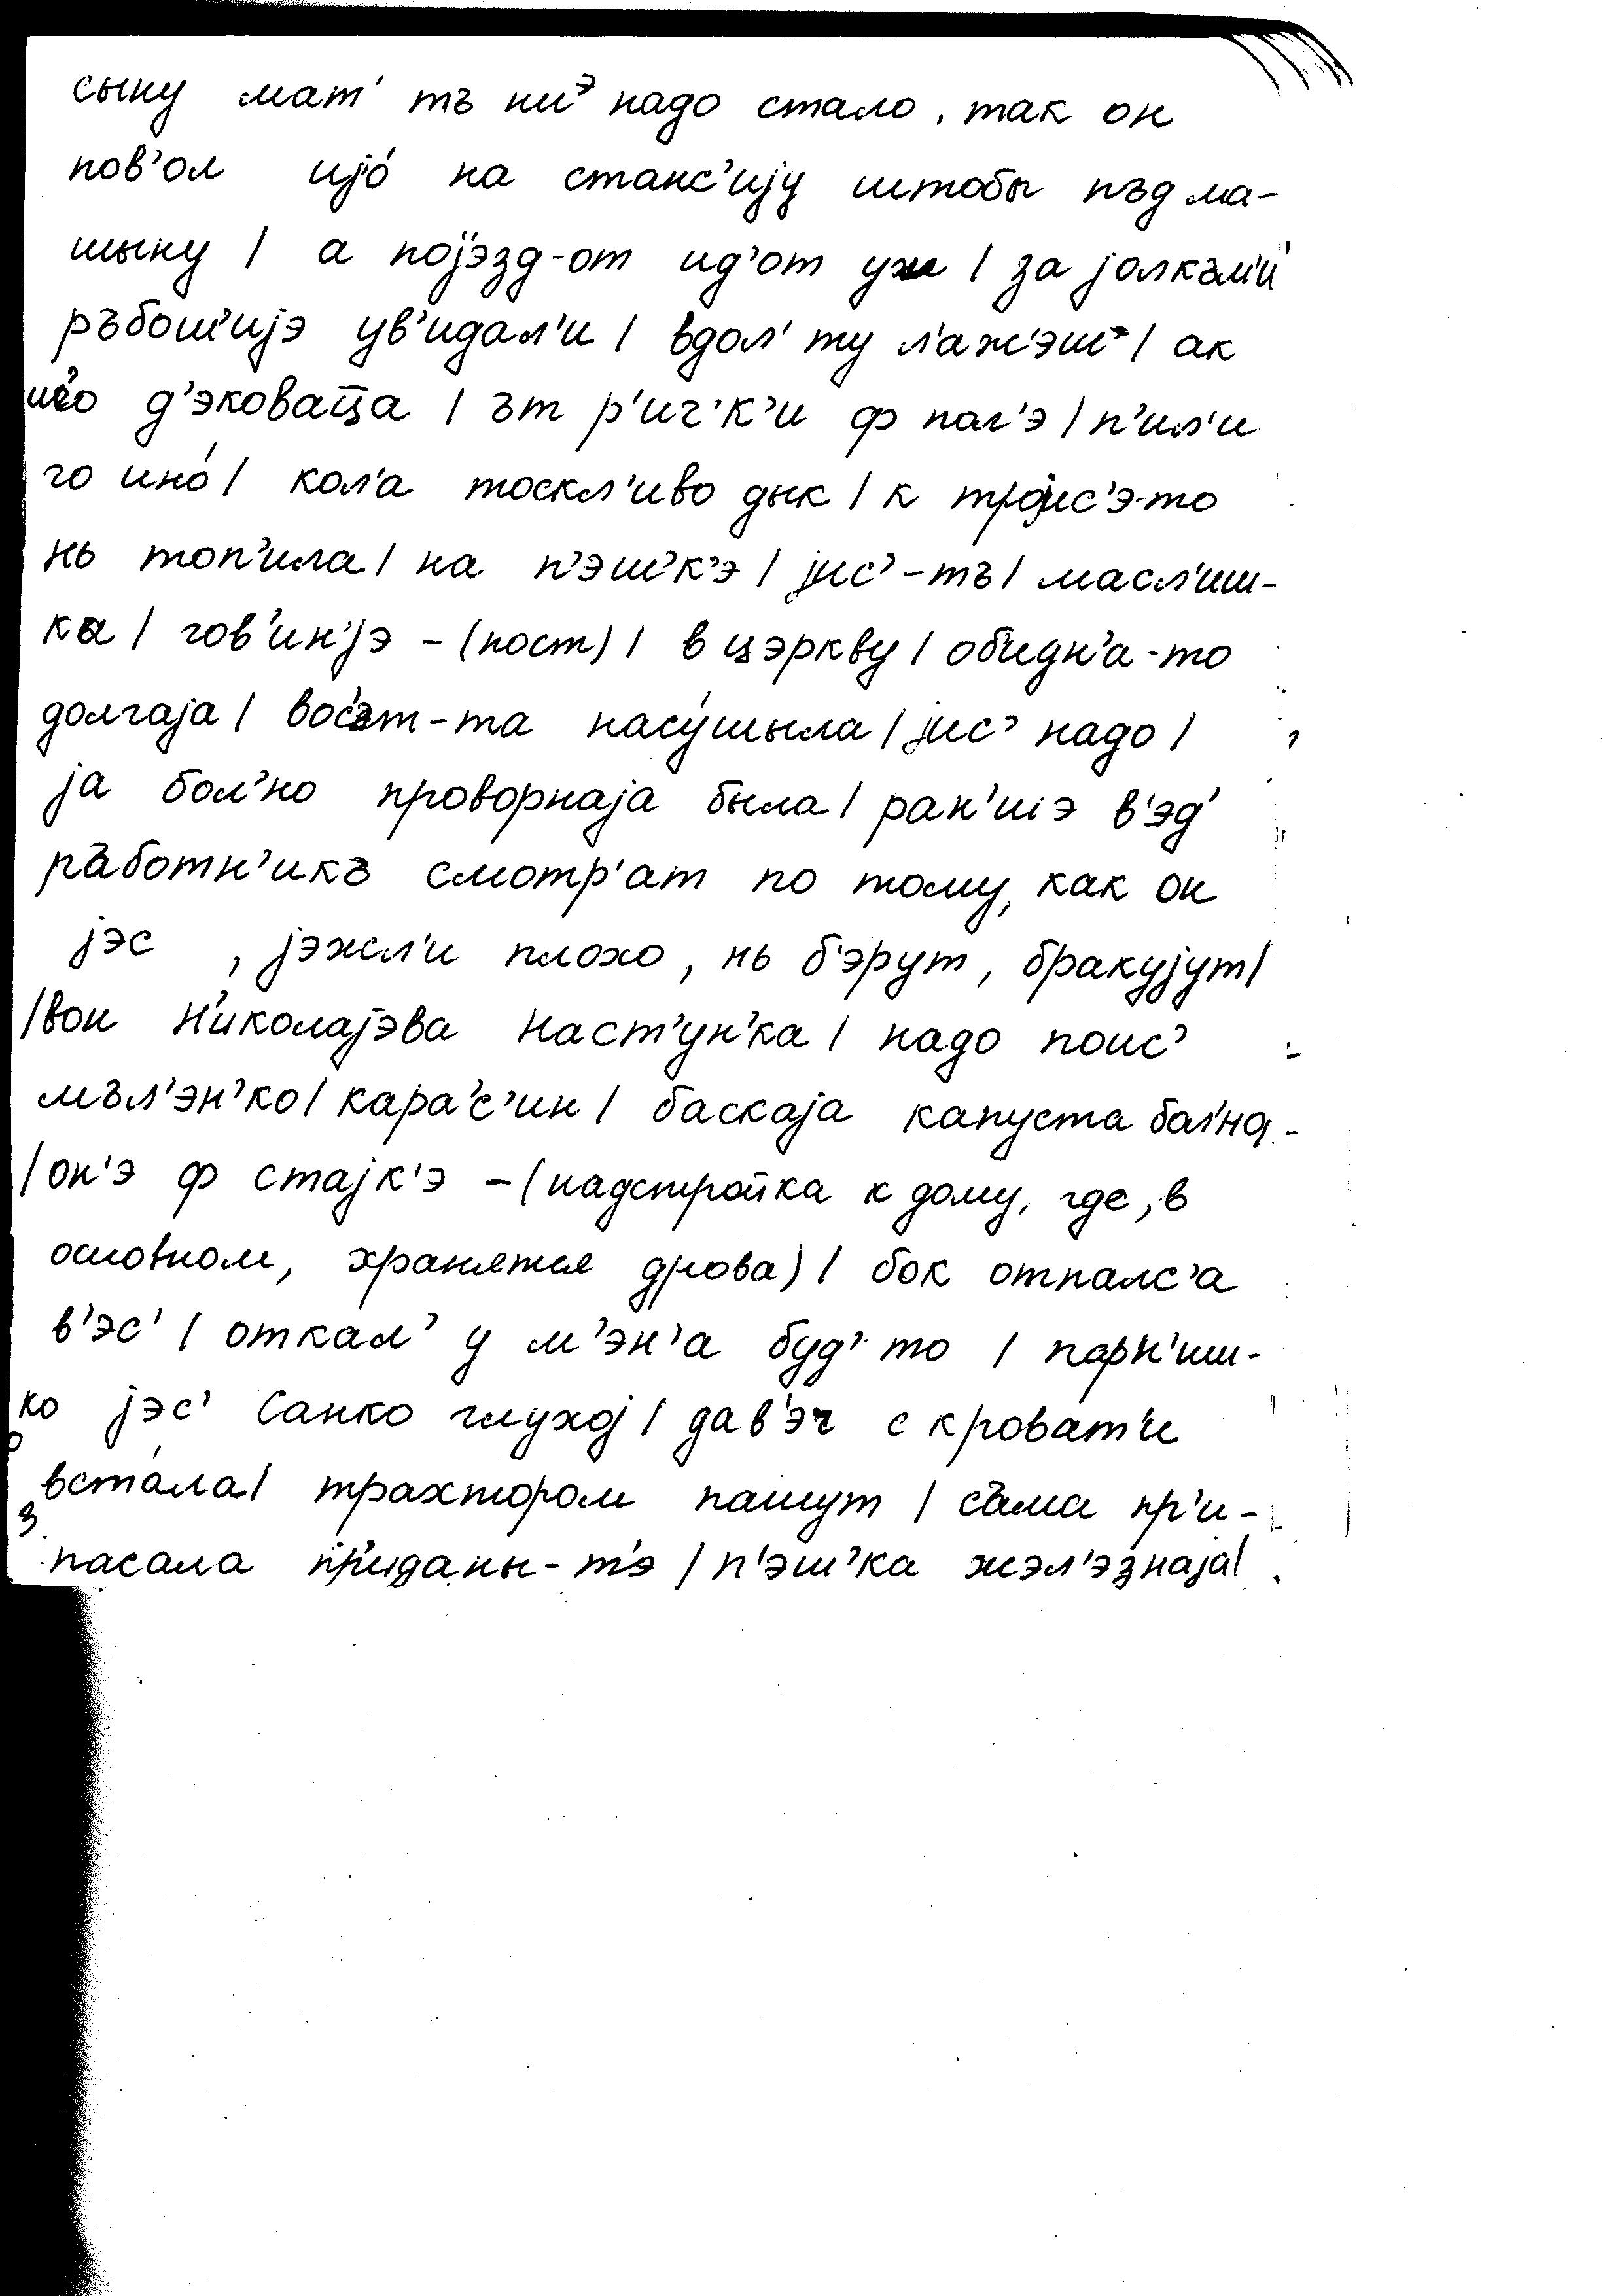 сыну мат' тъ ниᵊ надо стало, так он
пов'ол ијо́ на станс'ију штобы пъд ма-
шыну / а појэзд-от ид'от уж / за јолкъм'и
ръбош'ијэ ув'идал'и / вдол' ту л'аж'эш' / ак
д'эковац̅а / ът р'ич'к'и ф пол'э / п'ил'и
го ино́ / кол'а тоскл'иво дык / к тројис'э-то
нь топ'ила / на п'эш'к'э / јис'-тъ / масл'иш-
ка / гов'ин'јэ - (пост) / в цэркву / об'идн'а-то
долгаја / во́с'эт-та насу́шыла / јис' надо /
ја бол'но проворнаја была / ран'шэ в'эд'
ръботн'икъ смотр'ат по тому, как он
јэс , јэжл'и плохо, нь б'эрут, бракујут /
/ вон Н'иколајэва Наст'ун'ка / надо поис'
мъл'эн'ко / кара'с'ин / баскаја капуста бол'но -
/ он'э ф стајк'э - (надстройка к дому, где, в
основном, хранятся дрова) / бок отпалс'а
в'эс' / откал' у м'эн'а буд' то / парн'иш-
ко јэс' Санко глухој / дав'эч с кроват'и
вста́ла / трахтором пашут / съма пр'и-
пасала пр'иданы-т'э / п'эш'ка жэл'эзнаја /